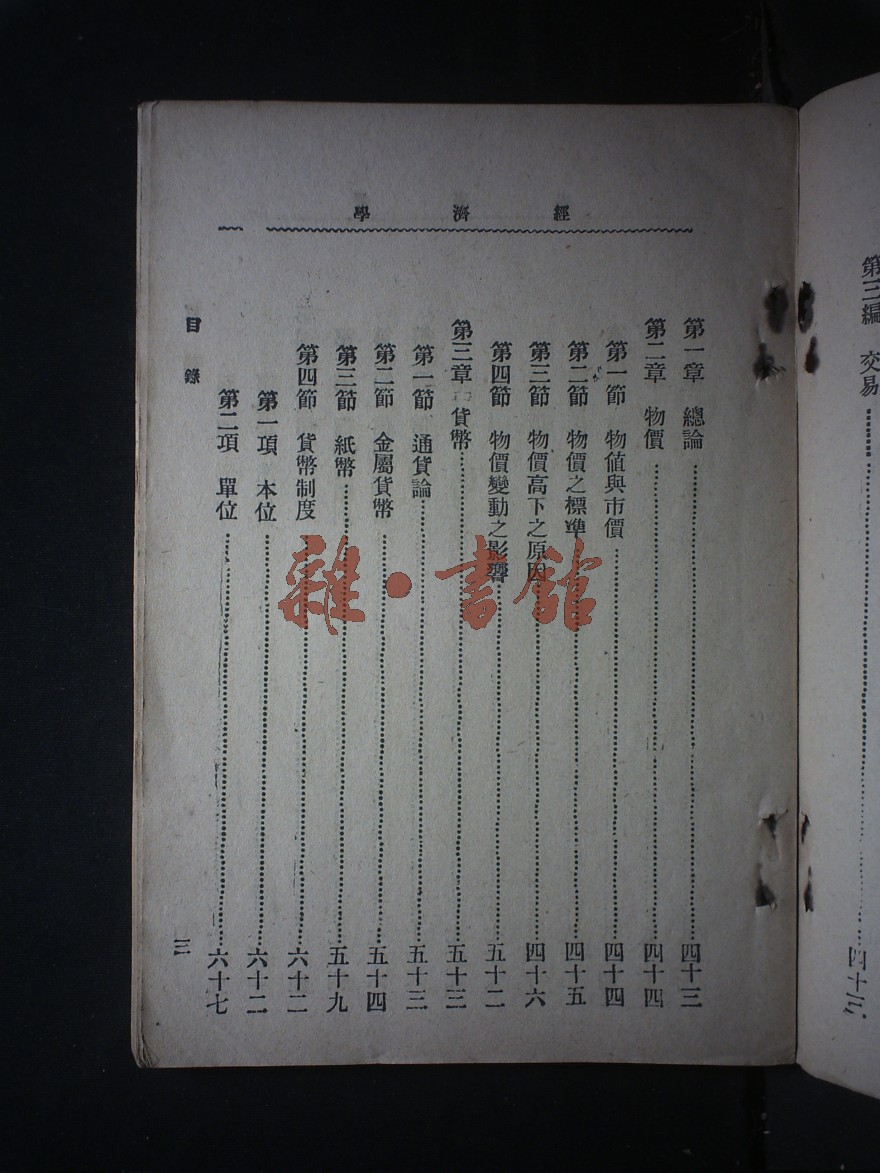 第三編　交易………四十三
經濟學
第一章　總論………四十三
第二章　物價………四十四
第一節　物値與市價………四十四
第二節　物價之標準………四十五
第三節　物價高下之原因………四十六
第四節　物價變動之影響………五十二
第三章　貨幣………五十三
第一節　通貨論………五十三
第二節　金屬貨幣………五十四
第三節　紙幣………五十九
第四節　貨幣制度………六十二
第一項　本位………六十二
第二項　單位………六十七
目錄
三
雜·書館